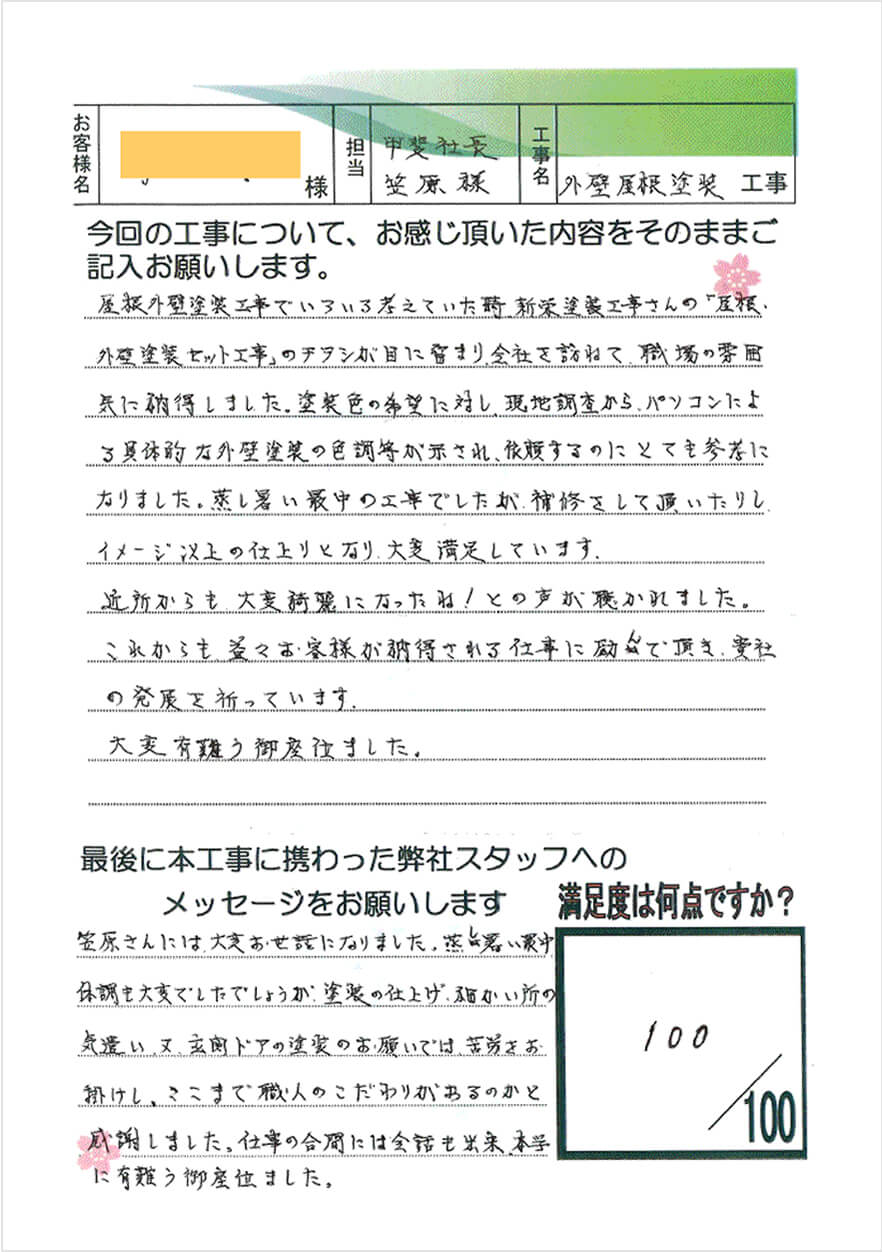 お客様名 様 担当 甲斐社長 笠原様 工事名 外壁屋根塗装 工事
今回の工事について、お感じ頂いた内容をそのままご
記入お願いします。
屋根外壁塗装工事でいろいろ考えていた時、新栄塗装工事さんの「屋根・
外壁塗装セット工事」のチラシが目に留まり、会社を訪ねて、職場の雰囲
気に納得しました。塗装色の希望に対し、現地調査から、パソコンによ
る具体的な外壁塗装の色調等が示され、依頼するのにとても参考に
なりました。蒸し暑い最中の工事でしたが、補修をして頂いたりし、
イメージ以上の仕上りとなり、大変満足しています。
近所からも、大変綺麗になったね！との声が聴かれました。
これからも、益々お客様が納得される仕事に励んで頂き、貴社
の発展を祈っています。
大変有難う御座位ました。
最後に本工事に携わった弊社スタッフへの
メッセージをお願いします
笠原さんには、大変お世話になりました。蒸し暑い最中
体調も大変でしたでしょうが、塗装の仕上げ、細かい所の
気遣い、又、玄関ドアの塗装のお願いでは、苦労をお
掛けし、ここまで職人のこだわりがあるのかと
感謝しました。仕事の合間には会話も出来、本当
に有難う御座位ました。
満足度は何点ですか？
100
/100